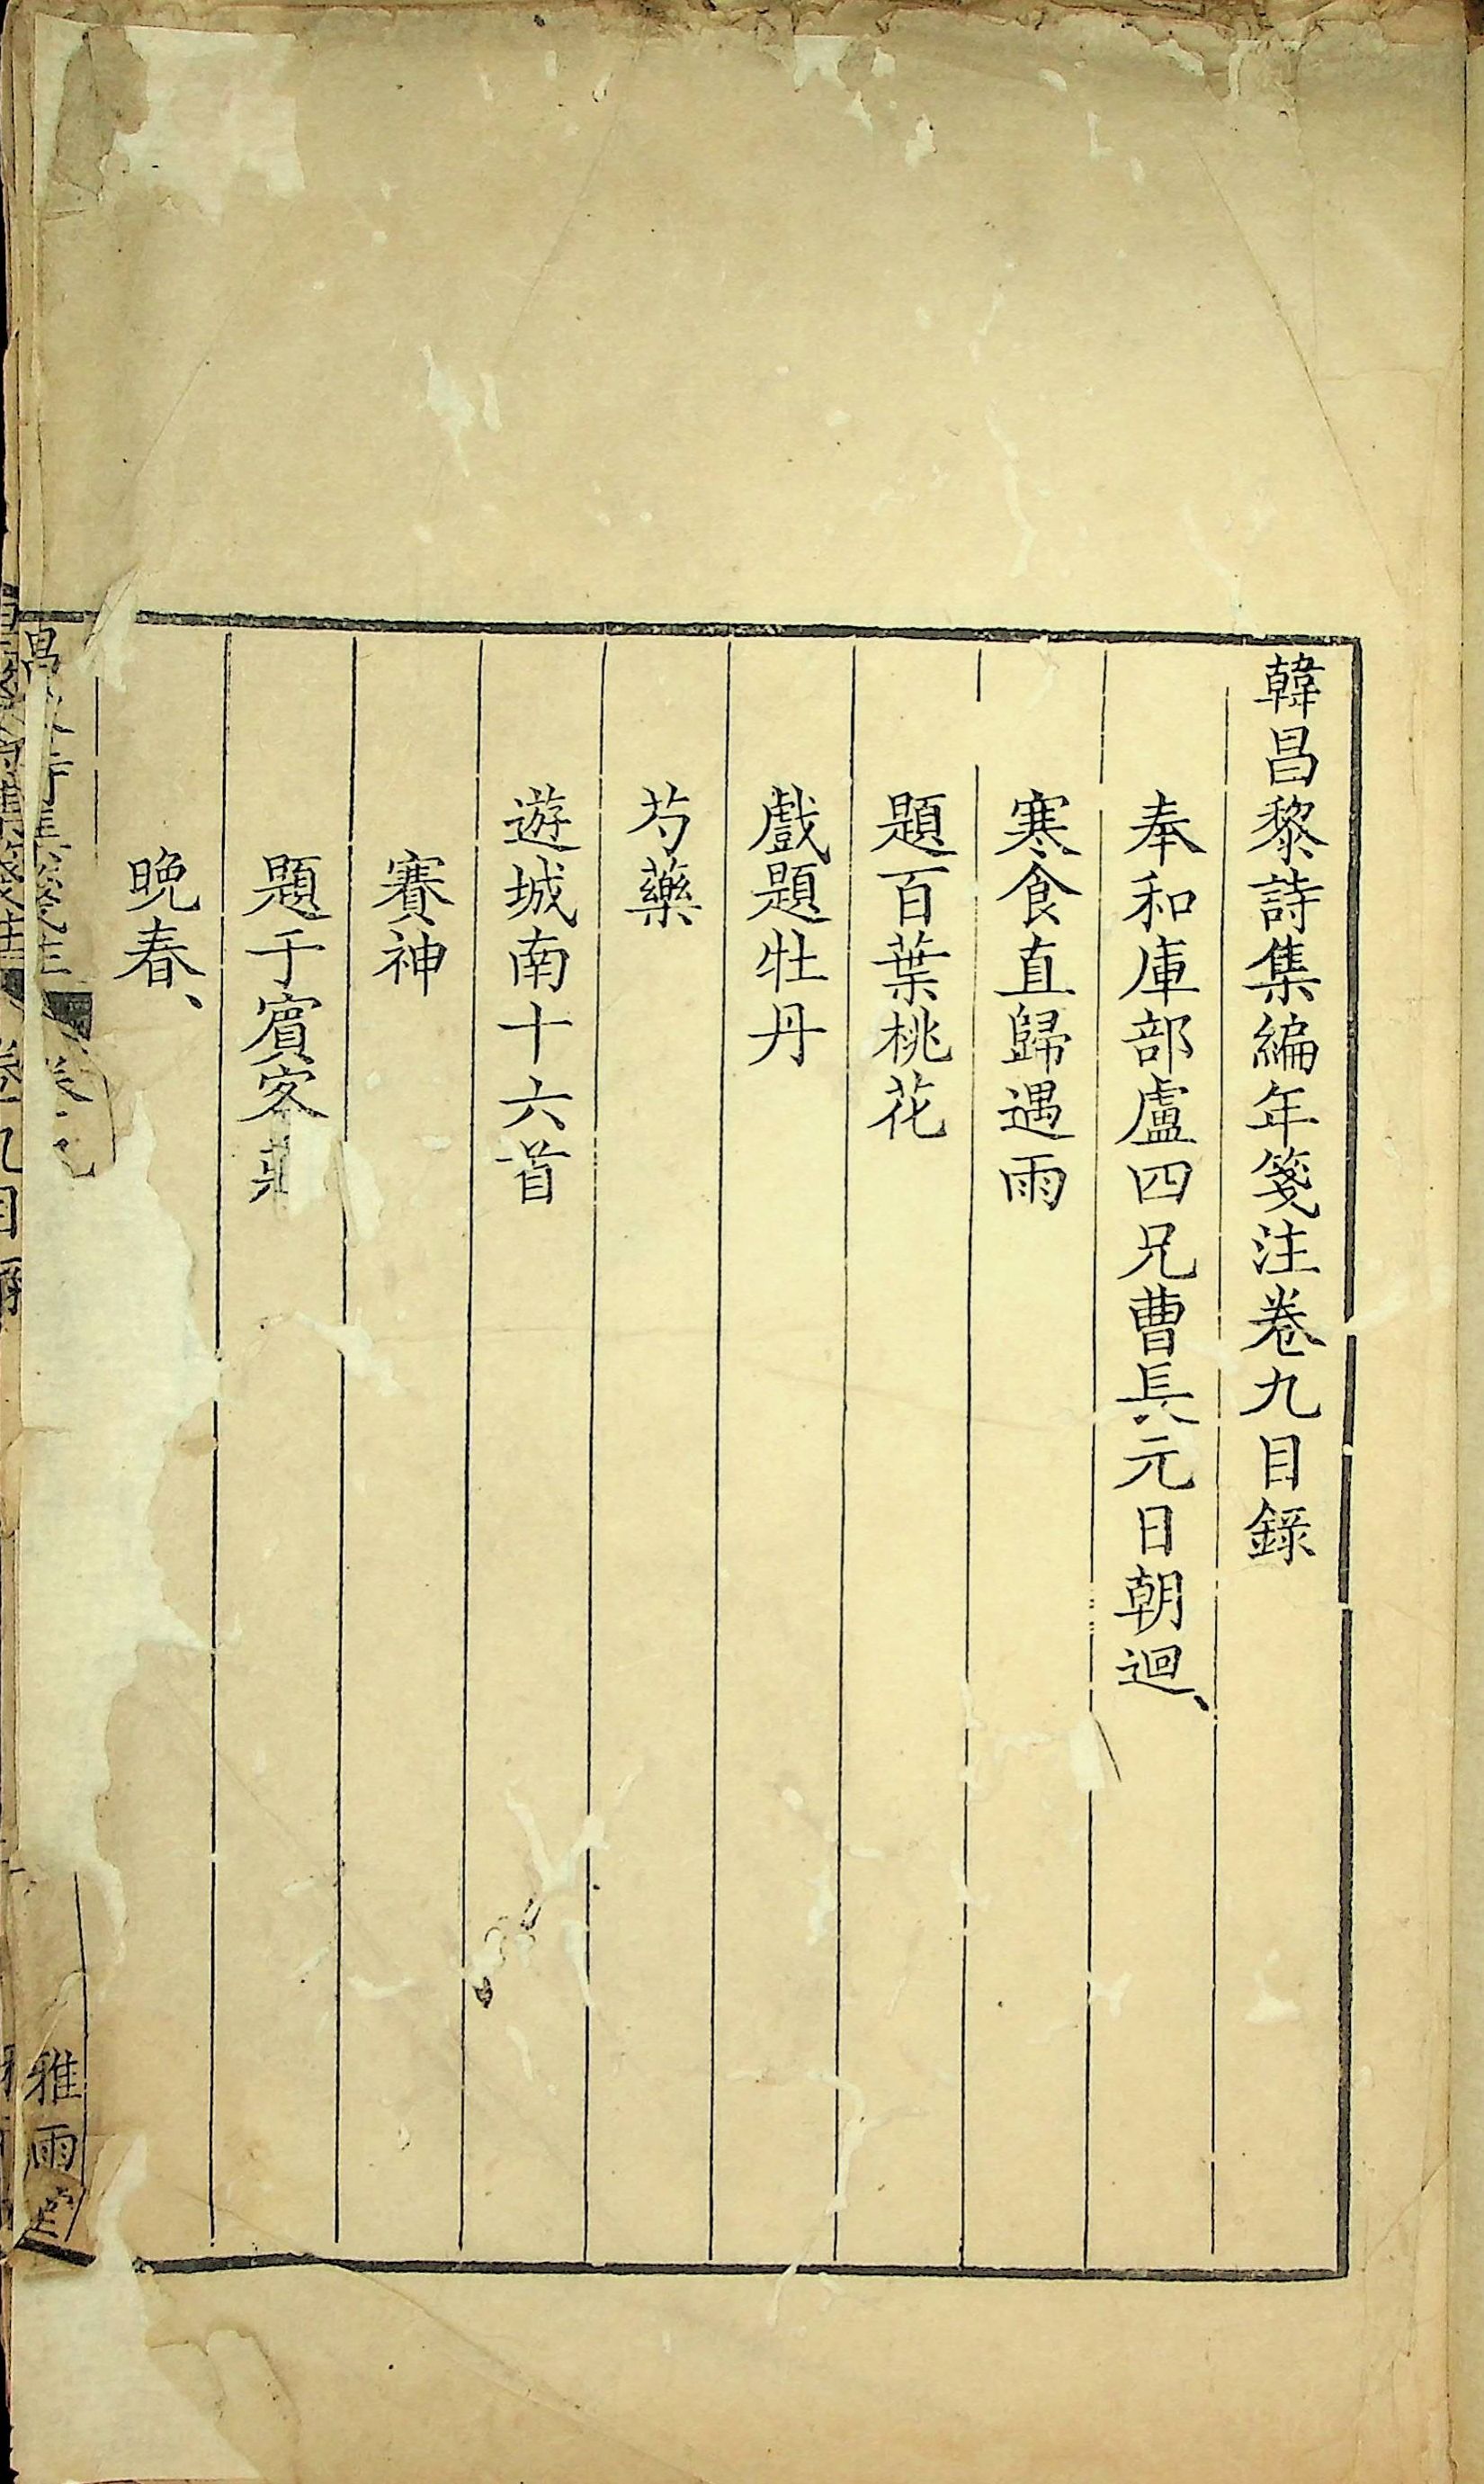 韓昌黎詩集編年箋注卷九目錄
奉和庫部盧四兄曹長元日朝迴、
寒食直歸遇雨
題百葉桃花
戲題牡丹
芍藥
遊城南十六首
賽神
題于賓客莊
晚春、
雅雨堂